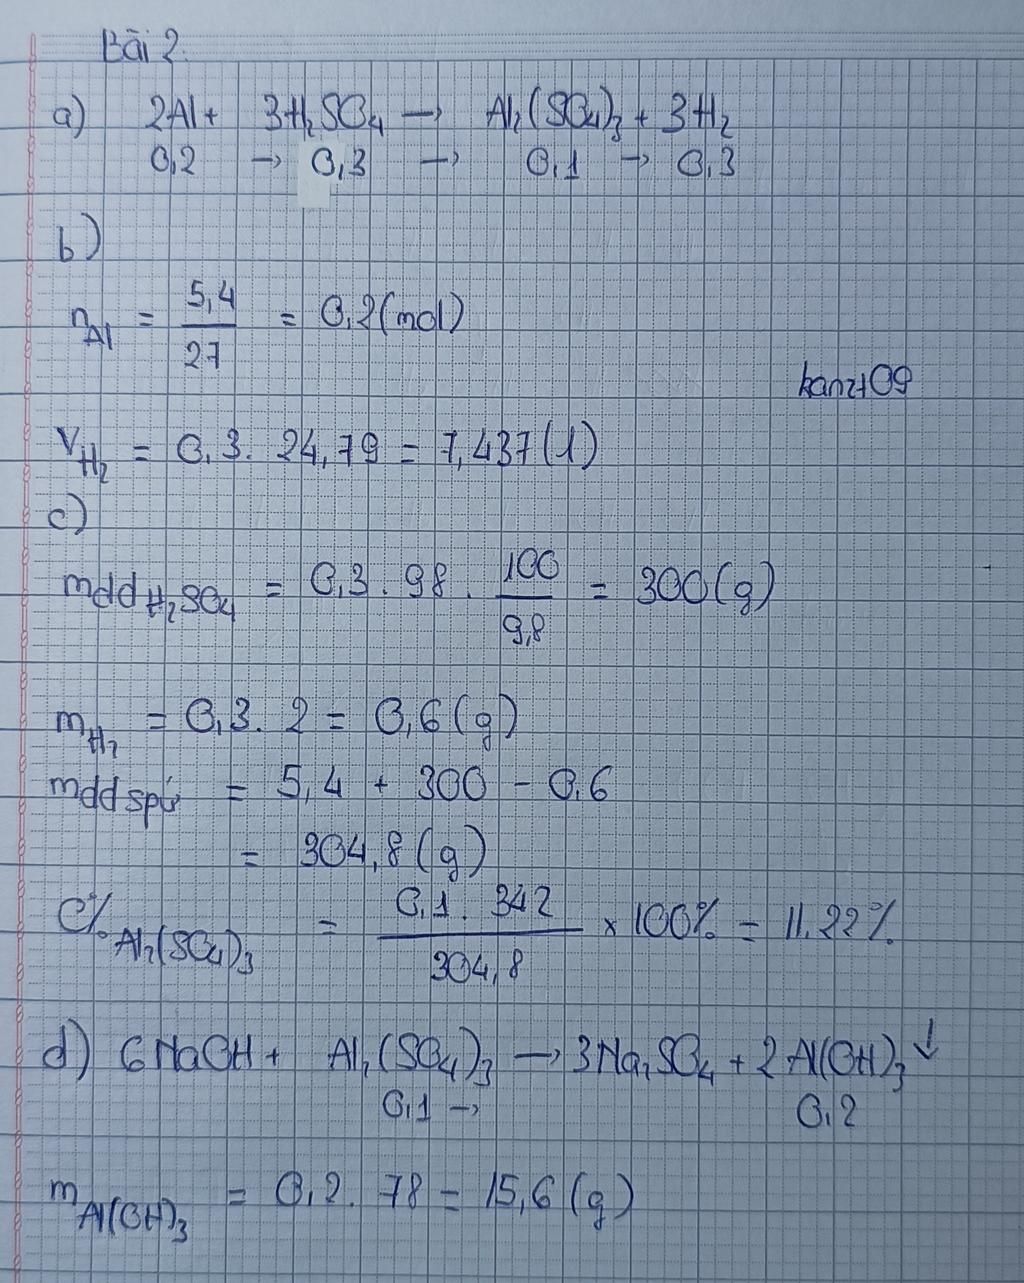 Bài 2.
a) 2Al + 3H₂SO₄ → Al₂(SO₄)₃ + 3H₂
0,2 → 0,3 → 0,1 → 0,3
b)
n_Al = 5,4/27 = 0,2 (mol)
V_H₂ = 0,3. 24,79 = 7,437 (l)
c)
mdd H₂SO₄ = 0,3 . 98 . 100/9,8 = 300 (g)
m_H₂ = 0,3. 2 = 0,6 (g)
mdd spứ = 5,4 + 300 - 0,6
= 304,8 (g)
C%_Al₂(SO₄)₃ = 0,1. 342/304,8 × 100% = 11,22%
d) 6NaOH + Al₂(SO₄)₃ → 3Na₂SO₄ + 2Al(OH)₃ ↓
0,1 → 0,2
m_Al(OH)₃ = 0,2. 78 = 15,6 (g)